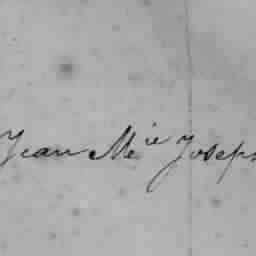 Jean Me ie Joseph